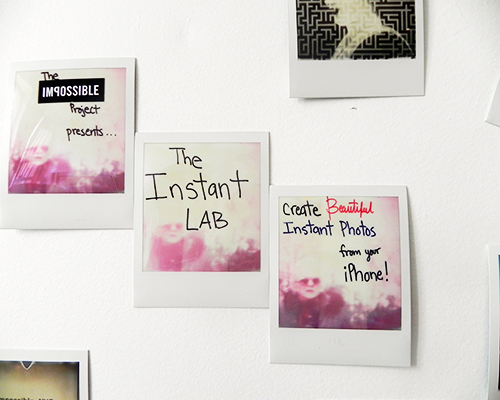 The
IMPOSSIBLE
Project
presents...
The
Instant
LAB
Create Beautiful
Instant Photos
from your
iPhone!